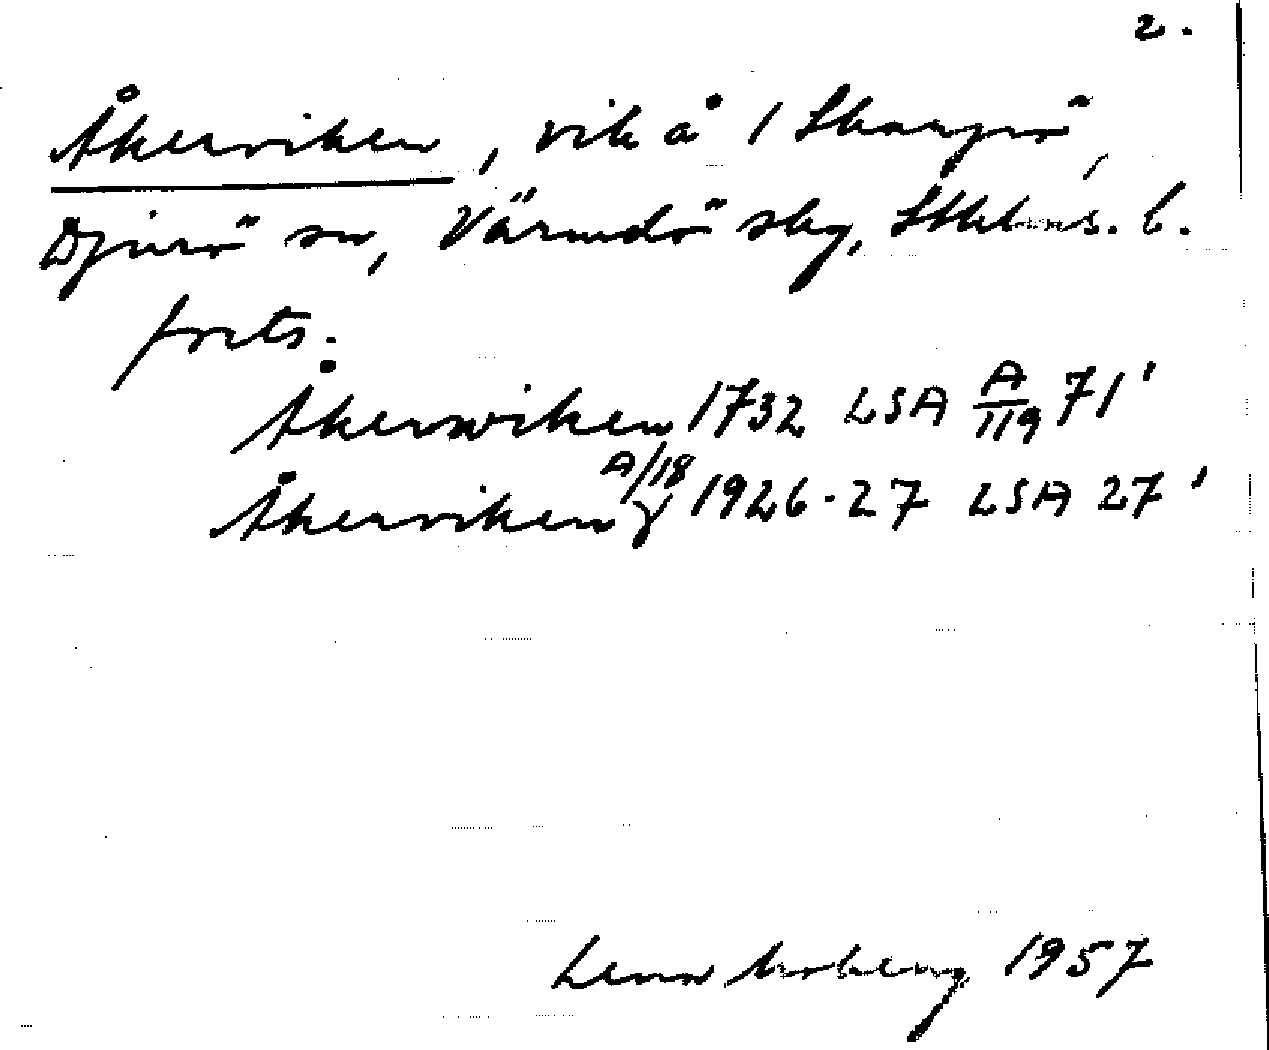 2.
Åkerviken, vik å 1 Skarpö,
Djurö sn, Värmdö skg, Sthlms. l.
forts.
Åkerswiken 1732 LSA A/119 71'
Åkerviken A/18 1926-27 LSA 27'
Lena Moberg 1957